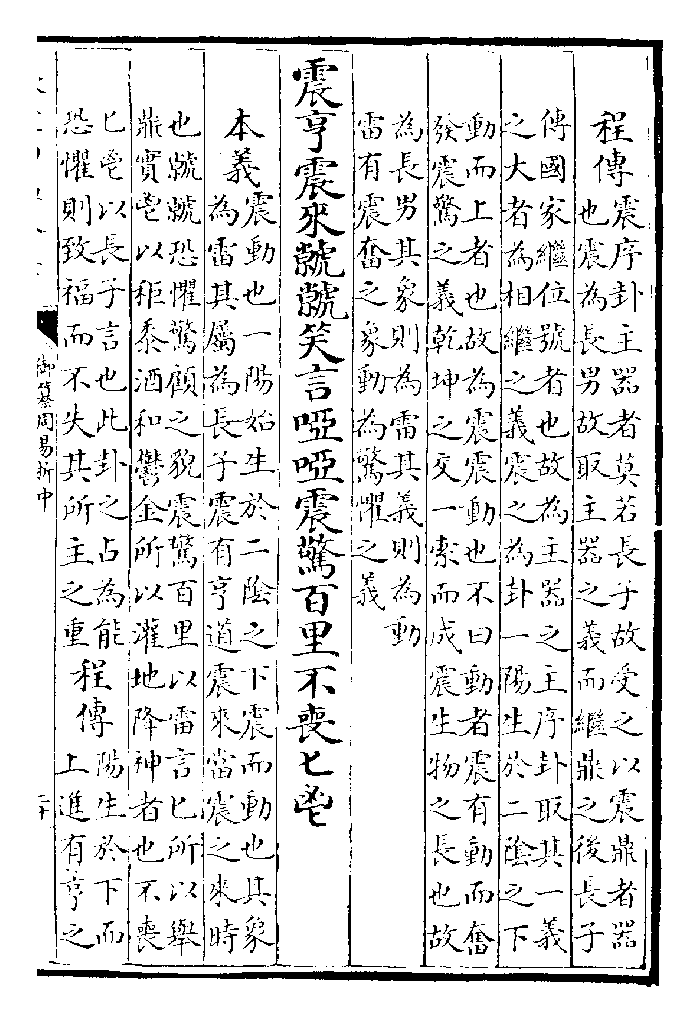 程傳
震序卦主器者莫若長子故受之以震鼎者器
也震為長男故取主器之義而繼鼎之後長子
傳國家繼位號者也故為主器之主序卦取其一義
之大者為相繼之義震之為卦一陽生於二陰之下
動而上者也故為震震動也不曰動者震有動而奮
發震驚之義乾坤之交一索而成震生物之長也故
為長男其象則為雷其義則為動
雷有震奮之象動為驚懼之義
震亨震來虩虩笑言啞啞震驚百里不喪匕鬯
本義
震動也一陽始生於二陰之下震而動也其象
為雷其屬為長子震有亨道震來當震之來時
也虩虩恐懼驚顧之貌震驚百里以雷言匕所以舉
鼎實鬯以秬黍酒和鬱金所以灌地降神者也不喪
匕鬯以長子言也此卦之占為能
恐懼則致福而不失其所主之重
程傳
陽生於下而
上進有亨之
御纂周易折中